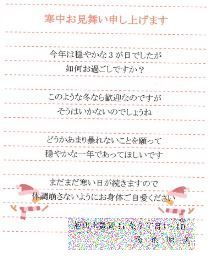 寒中お見舞い申し上げます
今年は穏やかな3が日でしたが
如何お過ごしですか？
このような冬なら歓迎なのですが
そうはいかないのでしょうね
どうかあまり暴れないことを願って
穏やかな一年であってほしいです
まだまだ寒い日が続きますので
体調崩さないようにお身体ご自愛ください